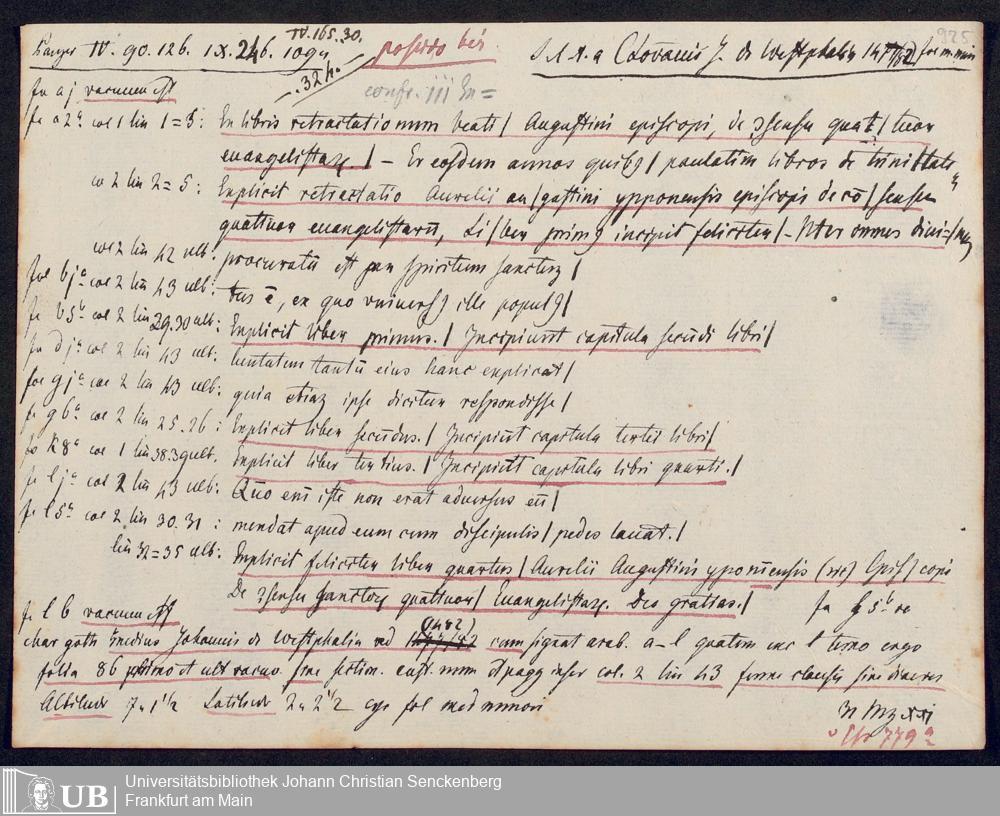 Panzer IV. 90. 126. IX. 246. 1094 IV. 165. 30. possedo bis S. l. t. a Lovanii J. de Westphalia fol min 925
324. confr. iij
fo a j vacuum est
fo a 2ª col 1 lin 1=5: In libris retractationum beati / Augustini episcopi, de ɔsensu quat / tuor
euangelistaꝝ. / – Per eosdem annos quibꝰ / paulatim libros de trinitate
co 2 lin 2=5: Explicit retractatio Aurelii au / gustini ypponensis episcopi de cō / sensu
quattuor euangelistarū, Li / ber primꝰ incipit feliciter / – Nter omnes diui= / nas
col 2 lin 42 ult. procuratū est per spiritum sanctuꝫ /
fol b jª col 2 lin 43 ult: tus ē, ex quo vniuersꝰ ille populꝰ /
fo b 5ᵇ col 2 lin 29.30 ult: Explicit liber primus. / Incipiunt capitula secūdi libri /
fo d jª col 2 lin 43 ult: luntatum tantū eius hanc explicat /
fol g jª col 2 lin 43 ult: quia etiaꝫ ipse dicitur respondisse /
fo g 6ª col 2 lin 25.26: Explicit liber secūdus. / Incipiūt capitula tertii libri /
fo k 8ª col 1 lin 38.39 ult. Explicit liber tertius. / Incipiūt capitula libri quarti. /
fo l jª col 2 lin 43 ult: Quo eni iste non erat aduersus eū /
fo l 5ª col 2 lin 30.31: mendat apud eum cum discipulis / pedes lauat. /
lin 32=35 ult: Explicit feliciter liber quartus / Aurelii Augustinis yponiensis (sic) Epis / copi
De ɔsensu sanctoꝝ quattuor / Euangelistaꝝ. Deo gratias. / fo 5ᵇ
fo l 6 vacuum est (1482)
char goth medius Johannis de Westphalia ad 1477/82 cum signat arab. a–l quatern unc l terno ergo
folia 86 primo et ult vacuo. sine custod. num et pagg inser col. 2 lin 43 forme
Altitudo 7 u 1½ Latitudo 2 u 2½ fol med minori
Cfr 779 a
Universitätsbibliothek Johann Christian Senckenberg
Frankfurt am Main
UB